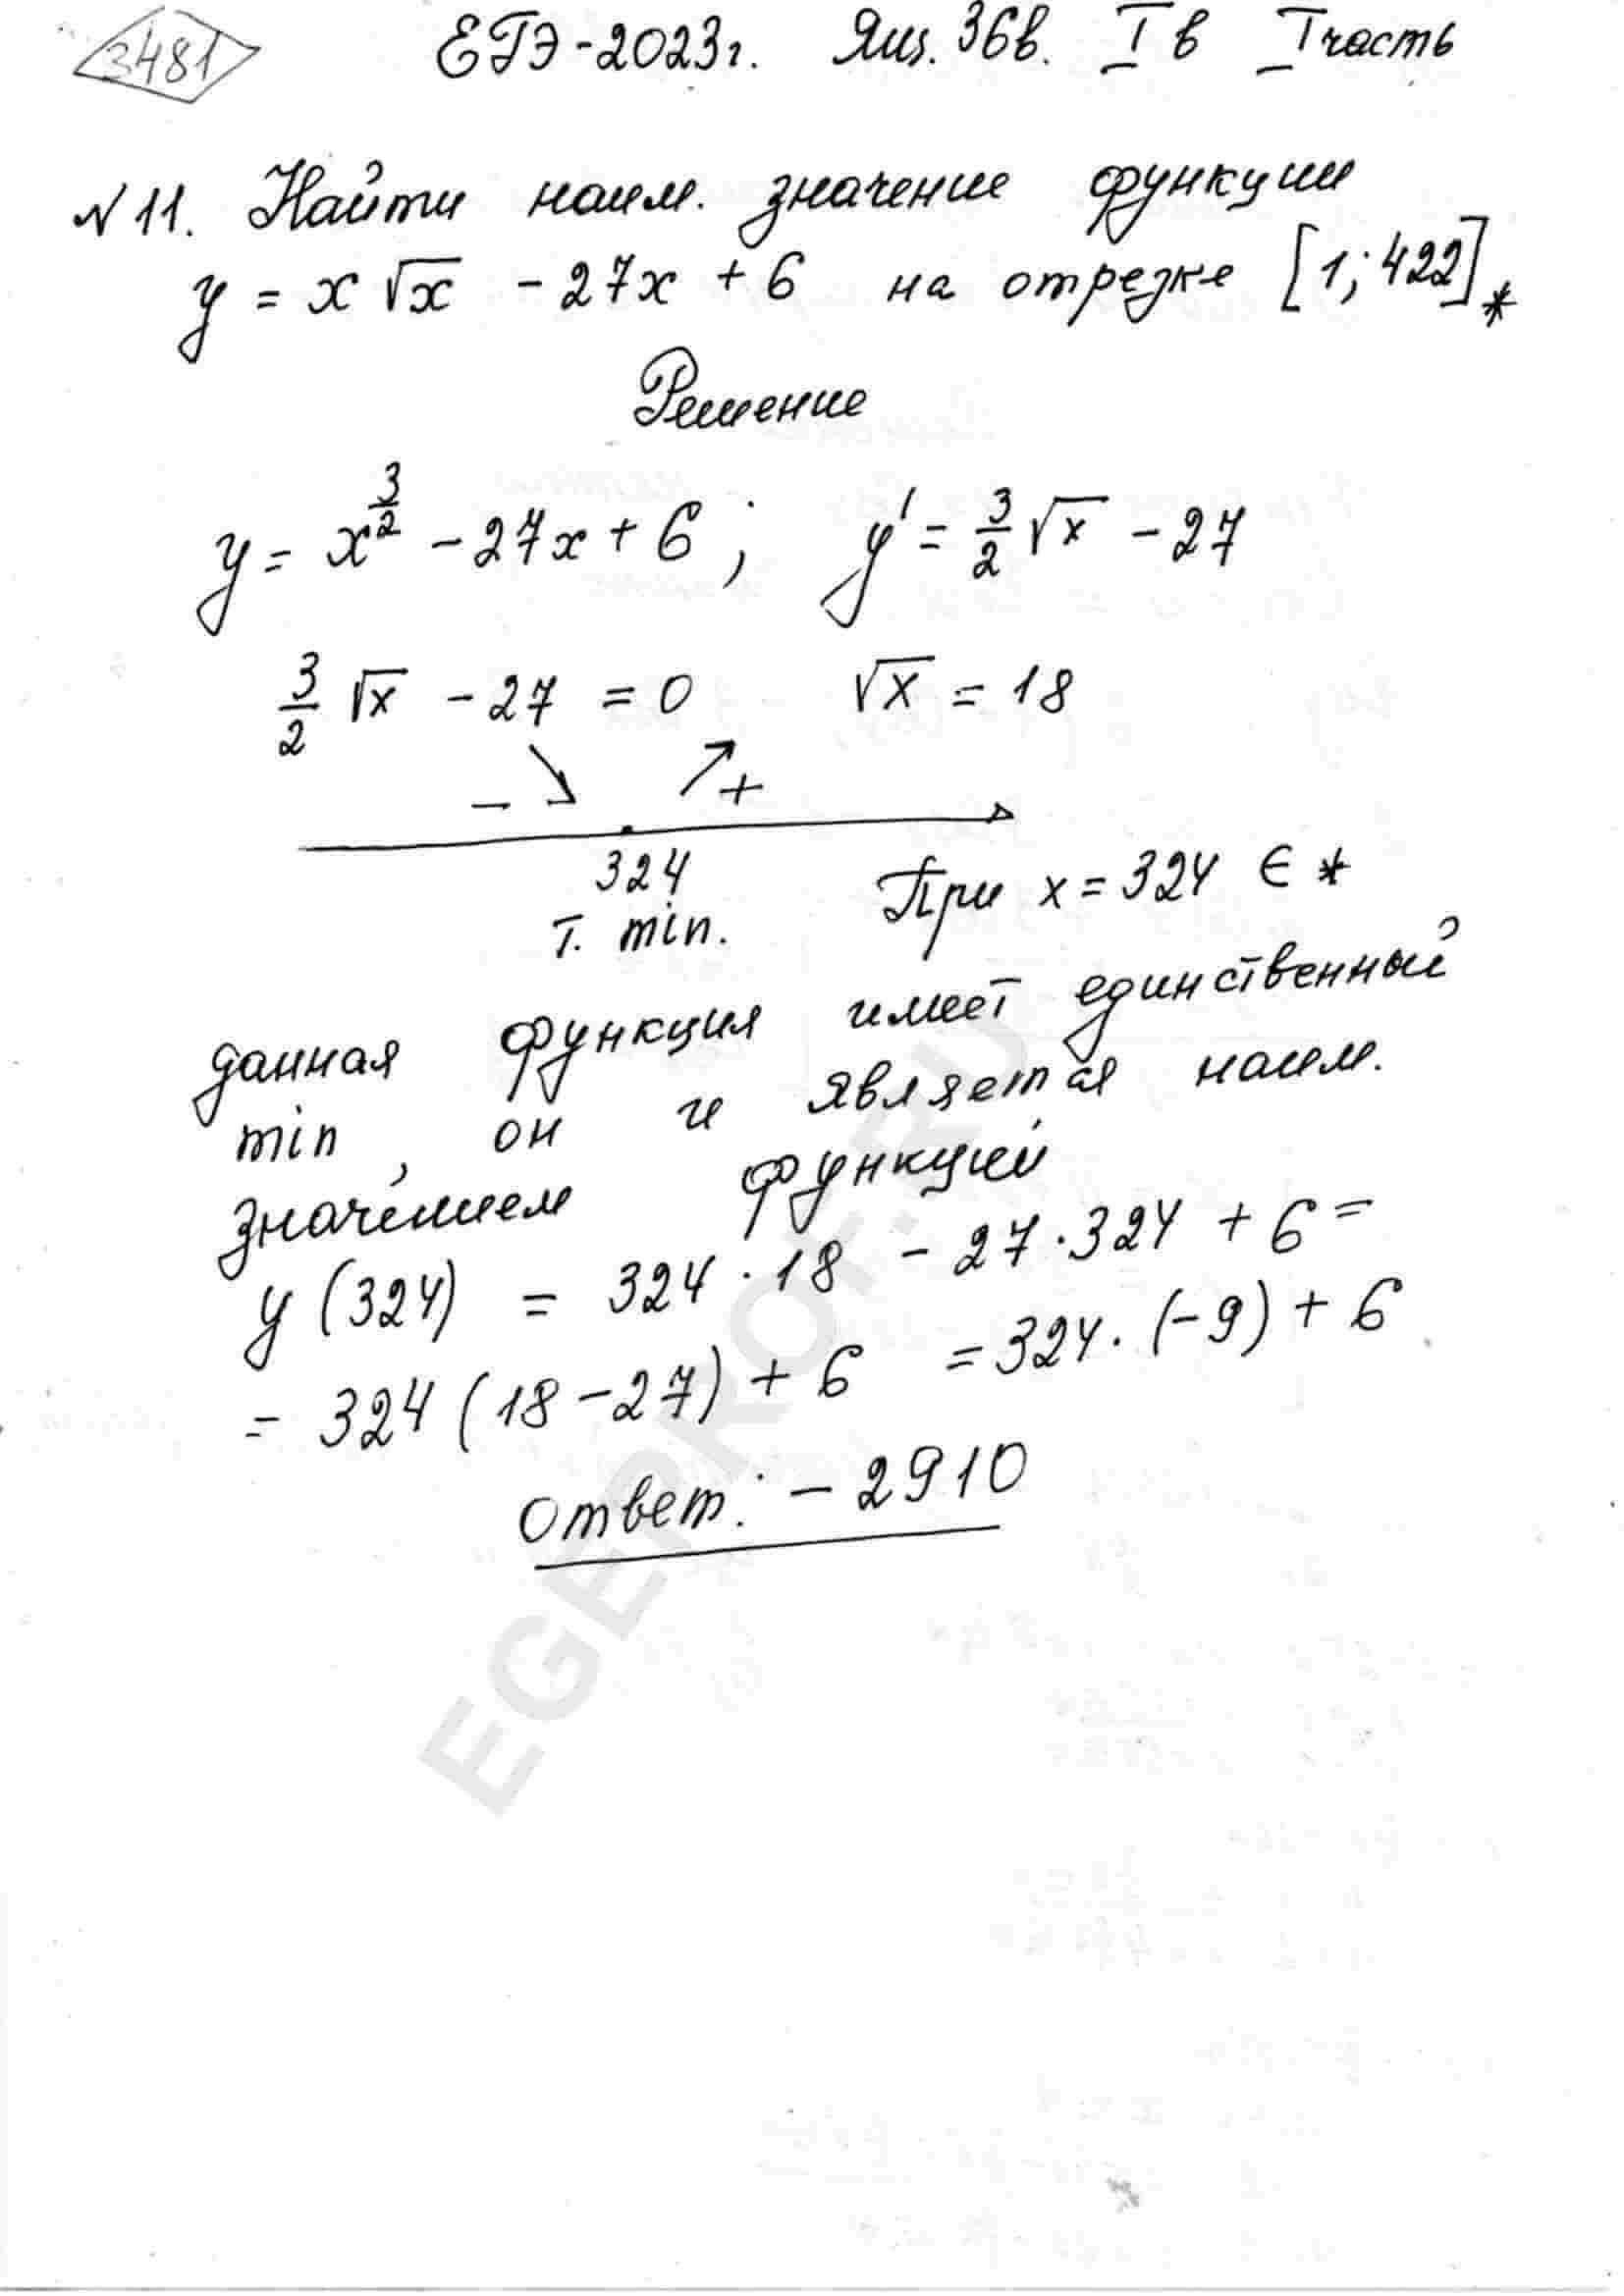 3481
ЕГЭ-2023г. Ящ. 36в. I в I часть
№11. Найти наим. значение функции
y = x√x - 27x + 6 на отрезке [1; 422]*
Решение
y = x^(3/2) - 27x + 6; y' = 3/2 √x - 27
3/2 √x - 27 = 0 √x = 18
- ↘ ↗ +
324
т. min. При x = 324 ∈ *
данная функция имеет единственный
min, он и является наим.
значением функций
y(324) = 324 · 18 - 27 · 324 + 6 =
= 324(18 - 27) + 6 = 324 · (-9) + 6
Ответ: - 2910
EGEPROF.RU